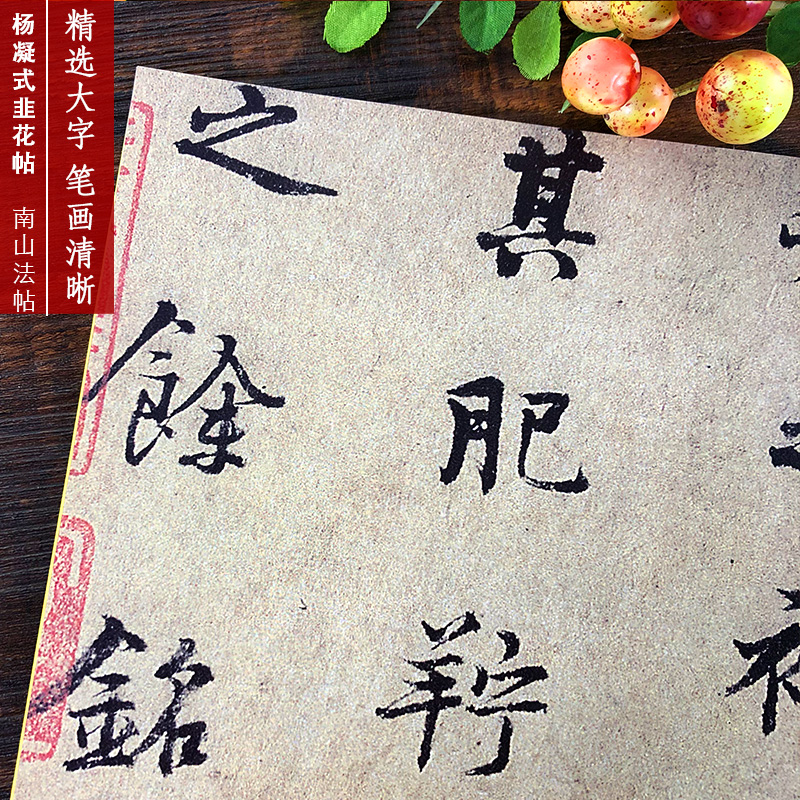 精选大字 笔画清晰
杨凝式韭花帖 南山法帖
其肥羜
之餘銘